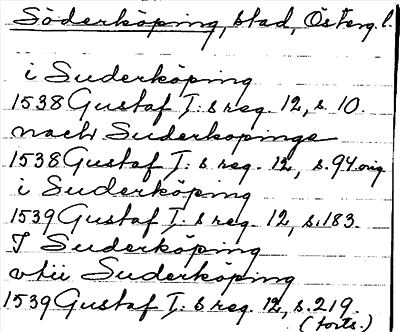 Söderköping, stad, Österg. l.
i Suderköping
1538 Gustaf I:s reg. 12, s. 10.
nach Suderkopinge
1538 Gustaf I:s reg. 12, s. 94 orig
i Suderköping
1539 Gustaf I:s reg. 12, s. 183.
I Suderköping
vtii Suderköping
1539 Gustaf I:s reg. 12, s. 219.
(forts.)